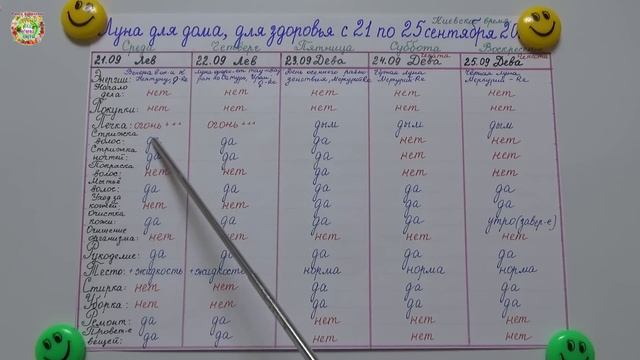 Киевское время
Луна для дома, для здоровья с 21 по 25 сентября 20
Среда Четверг Пятница Суббота Воскресенье
21.09 Лев 22.09 Лев 23.09 Дева 24.09 Дева 25.09 Дева
Энергии: День осеннего равно- Чёрная луна Чёрная луна
Начало дела: нет нет нет нет нет
Покупки: нет нет нет нет нет
Печка: огонь+++ огонь+++ дым дым дым
Стрижка волос: да да нет нет
Стрижка ногтей: да да да да да
Покраска волос: нет нет нет нет нет
Мытьё волос: да да да да да
Уход за кожей: нет нет да да да
Очистка кожи: да да да да утро(завер-е)
Очищение организма: нет нет нет нет нет
Рукоделие: да да да да да
Тесто: +жидкость +жидкость норма норма норма
Стирка: нет нет да да да
Уборка: нет нет да да да
Ремонт: да да нет нет нет
Провет-е вещей: да да нет нет нет